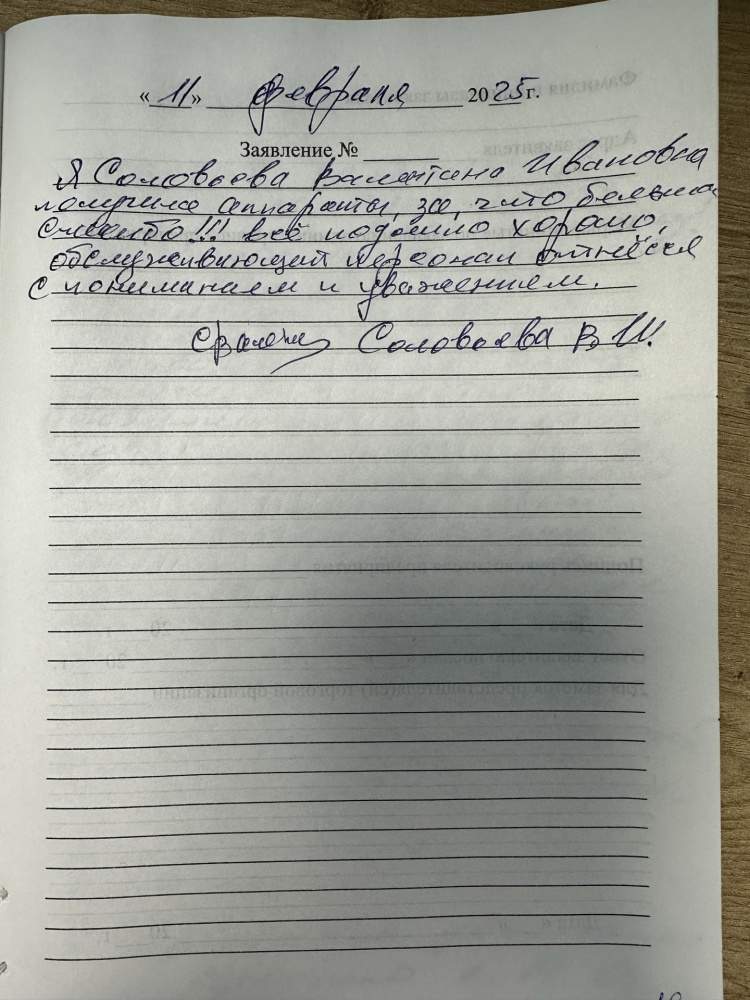 « 11 » февраля 2025 г.
Заявление №
Я Соловьева Валентина Ивановна
получила аппараты, за, что большое
спасибо!!! всё подошло хорошо,
обслуживающий персонал отнёсся
с пониманием и уважением.
Соловьева В И.